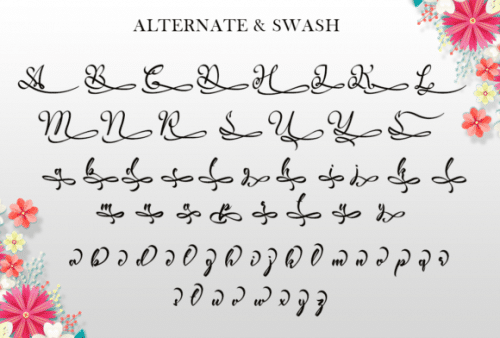 ALTERNATE & SWASH
A B C D H I K L
M N R S U Y
a b d f g h i j k l
m n p r u y
a b c d e g h k l m n o p q
r s u v w x y z